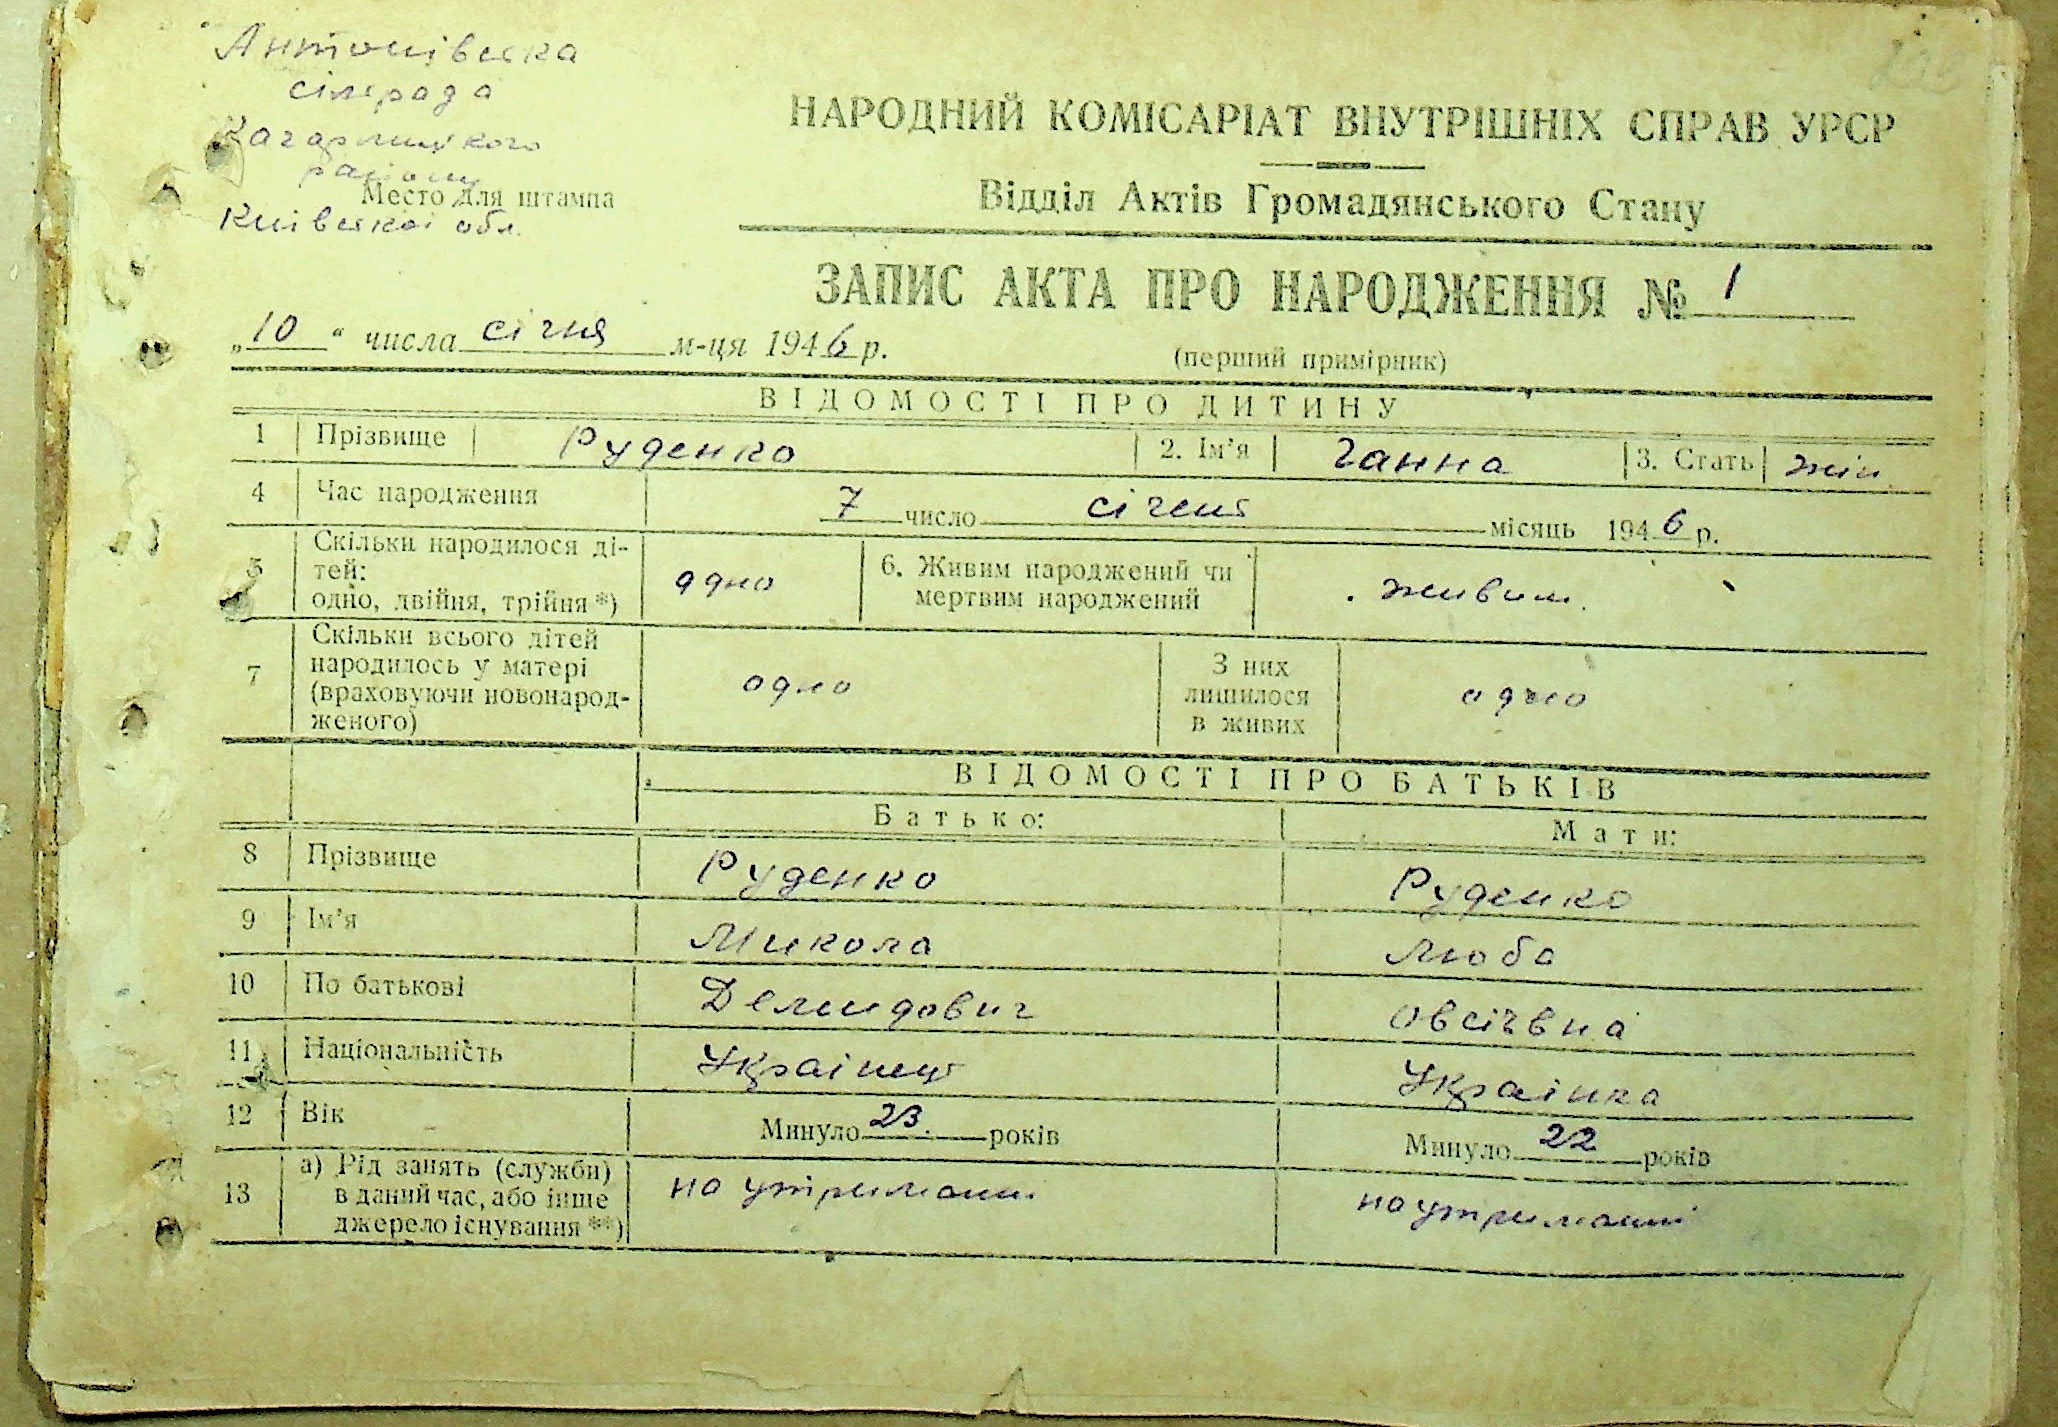 Антонівська
сільрада
Кагарлицького
району
Место для штампа
Київської обл.
НАРОДНИЙ КОМІСАРІАТ ВНУТРІШНІХ СПРАВ УРСР
Відділ Актів Громадянського Стану
ЗАПИС АКТА ПРО НАРОДЖЕННЯ № 1
„10“ числа січня м-ця 1946 р.
(перший примірник)
ВІДОМОСТІ ПРО ДИТИНУ
1 Прізвище Руденко 2. Ім’я Ганна 3. Стать жін.
4 Час народження 7 число січень місяць 1946 р.
5 Скільки народилося ді-
тей:
одно, двійня, трійня *) одно 6. Живим народжений чи
мертвим народжений живим.
7 Скільки всього дітей
народилось у матері
(враховуючи новонарод-
женого) одно З них
лишилося
в живих одно
ВІДОМОСТІ ПРО БАТЬКІВ
Батько: Мати:
8 Прізвище Руденко Руденко
9 Ім’я Микола Люба
10 По батькові Демидович Овсіївна
11 Національність Українець Українка
12 Вік Минуло 23. років Минуло 22 років
13 а) Рід занять (служби)
в даний час, або інше
джерело існування **) на утриманні на утриманні